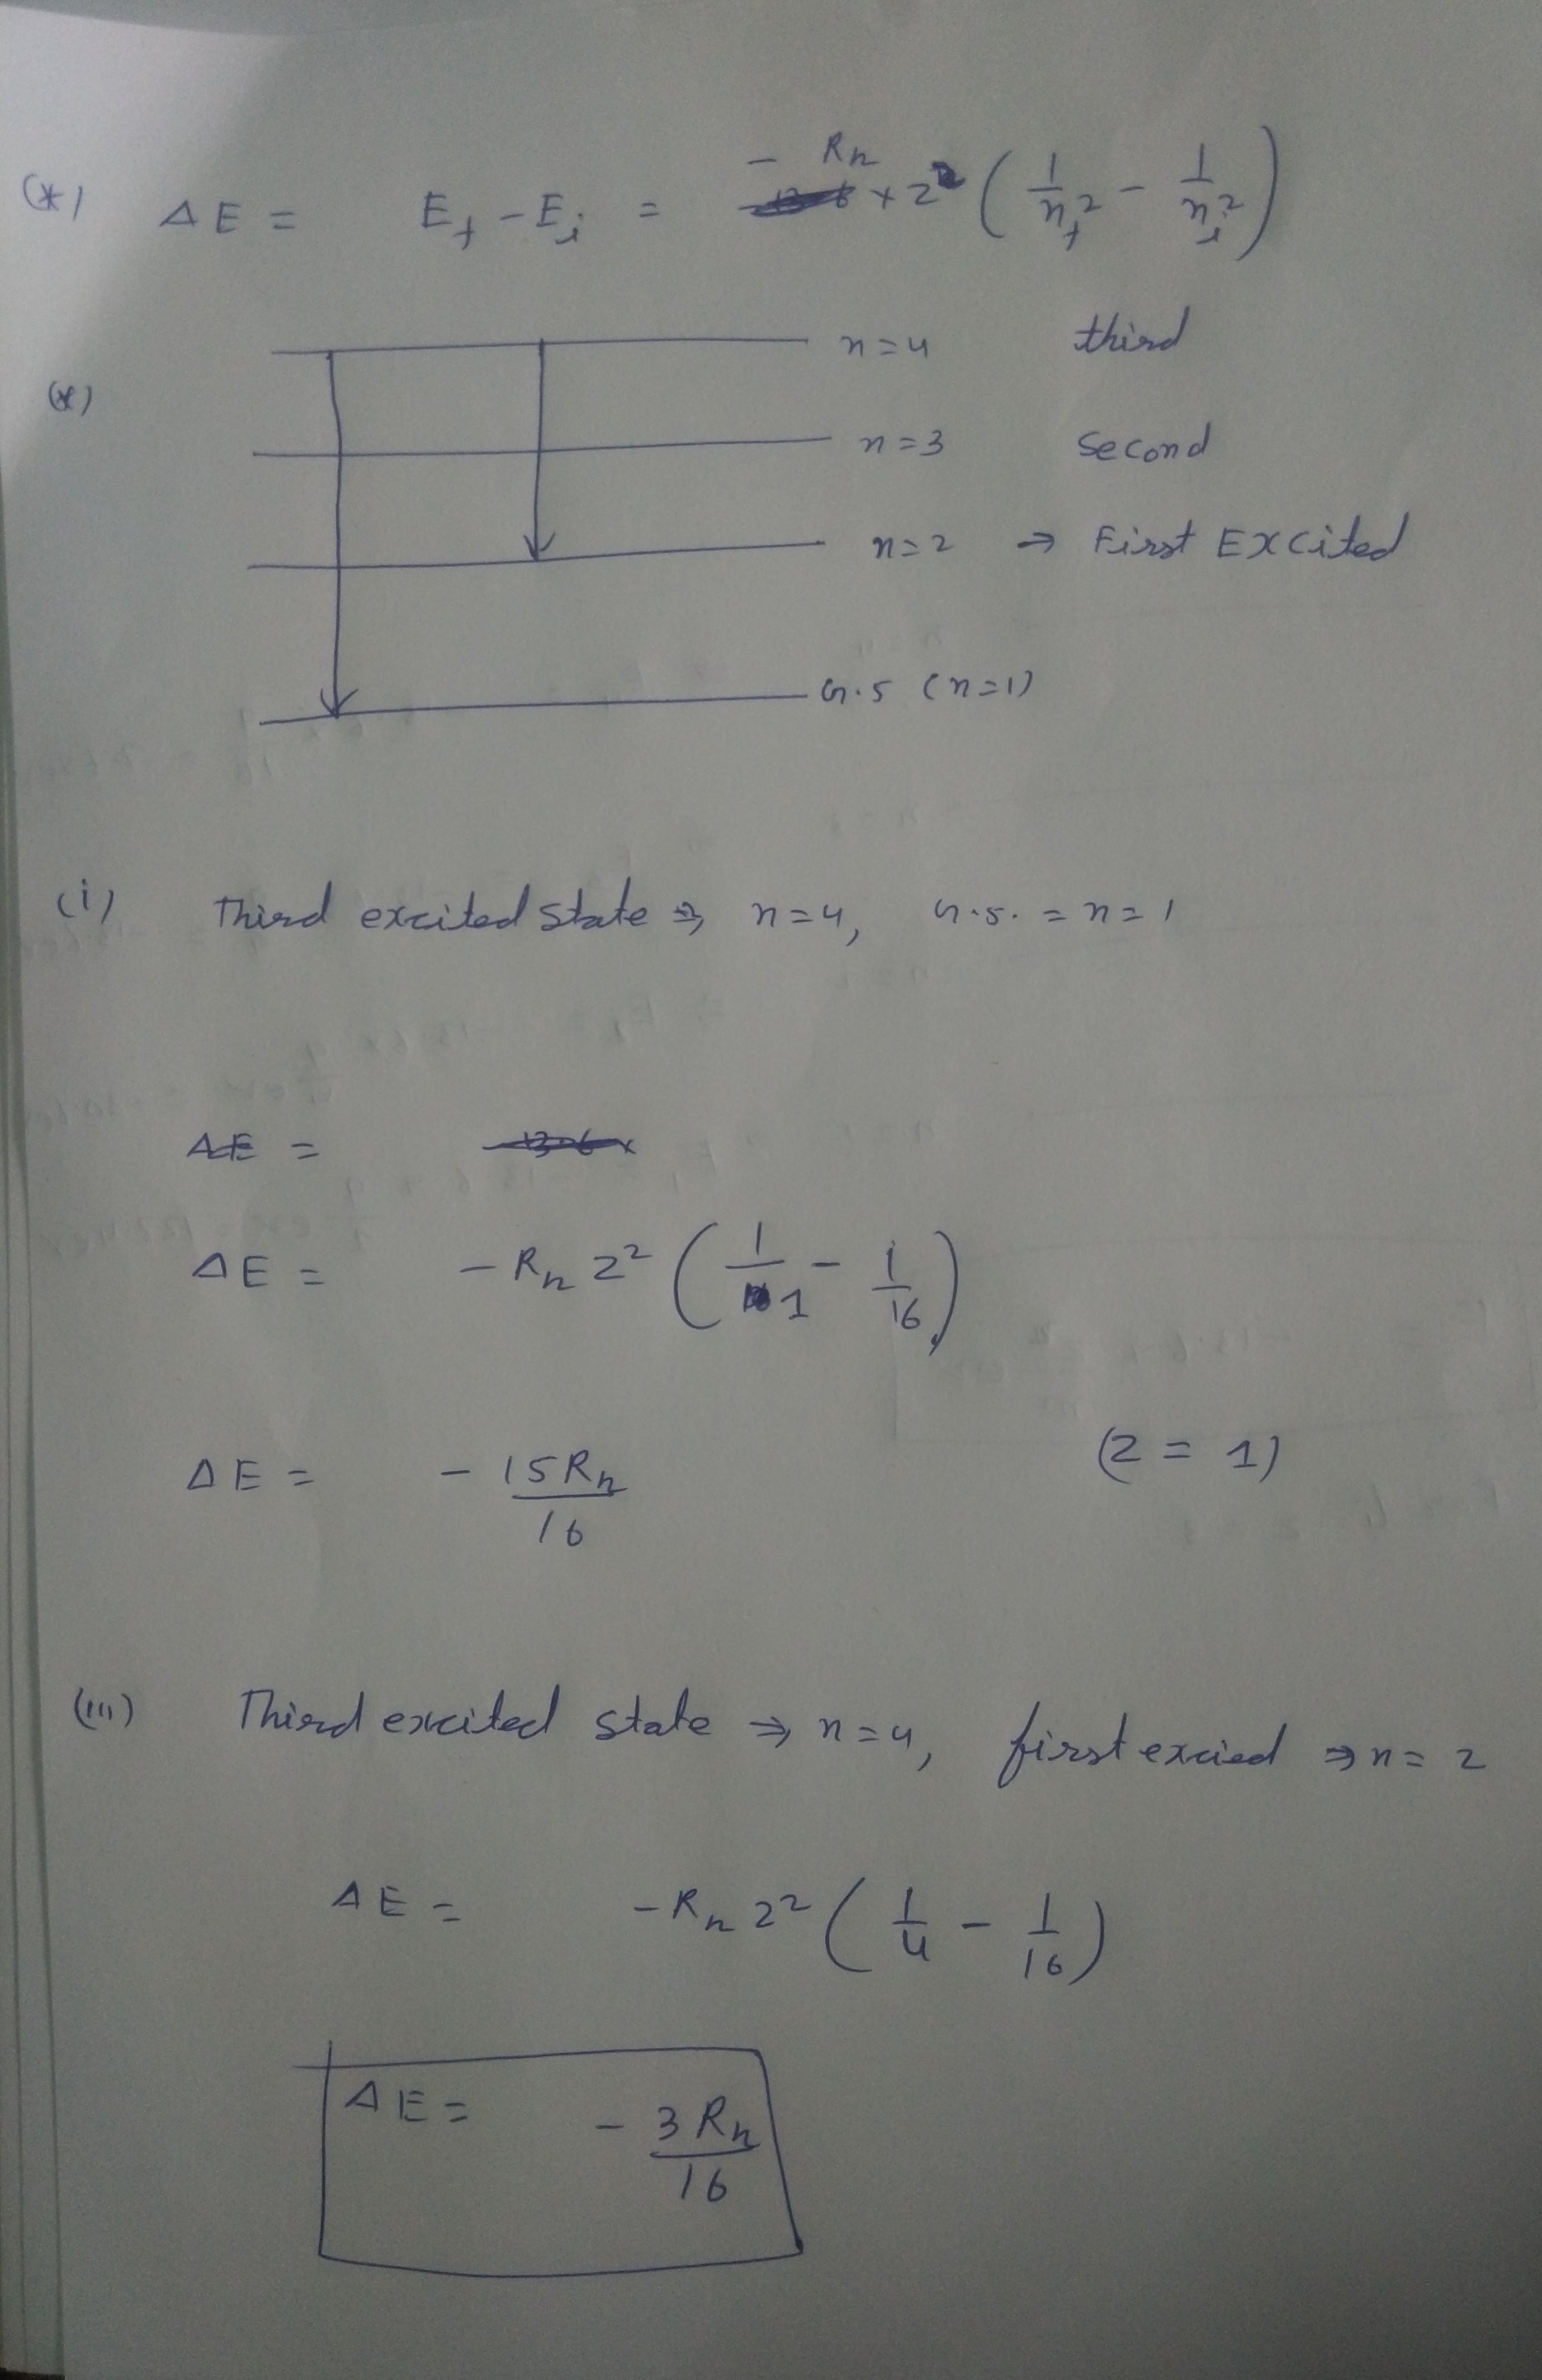 (*) ΔE = E_f - E_i = - R_h × Z² ( 1/n_f² - 1/n_i² )
n=4 third
(*)
n=3 second
n=2 → First Excited
G.S (n=1)
(i) Third excited state ⇒ n=4, G.S. = n=1
ΔE =
ΔE = - R_h Z² ( 1/1 - 1/16 )
ΔE = - 15R_h/16 (Z = 1)
(iii) Third excited state ⇒ n=4, first excied ⇒ n=2
ΔE = -R_h Z² ( 1/4 - 1/16 )
ΔE = - 3R_h/16